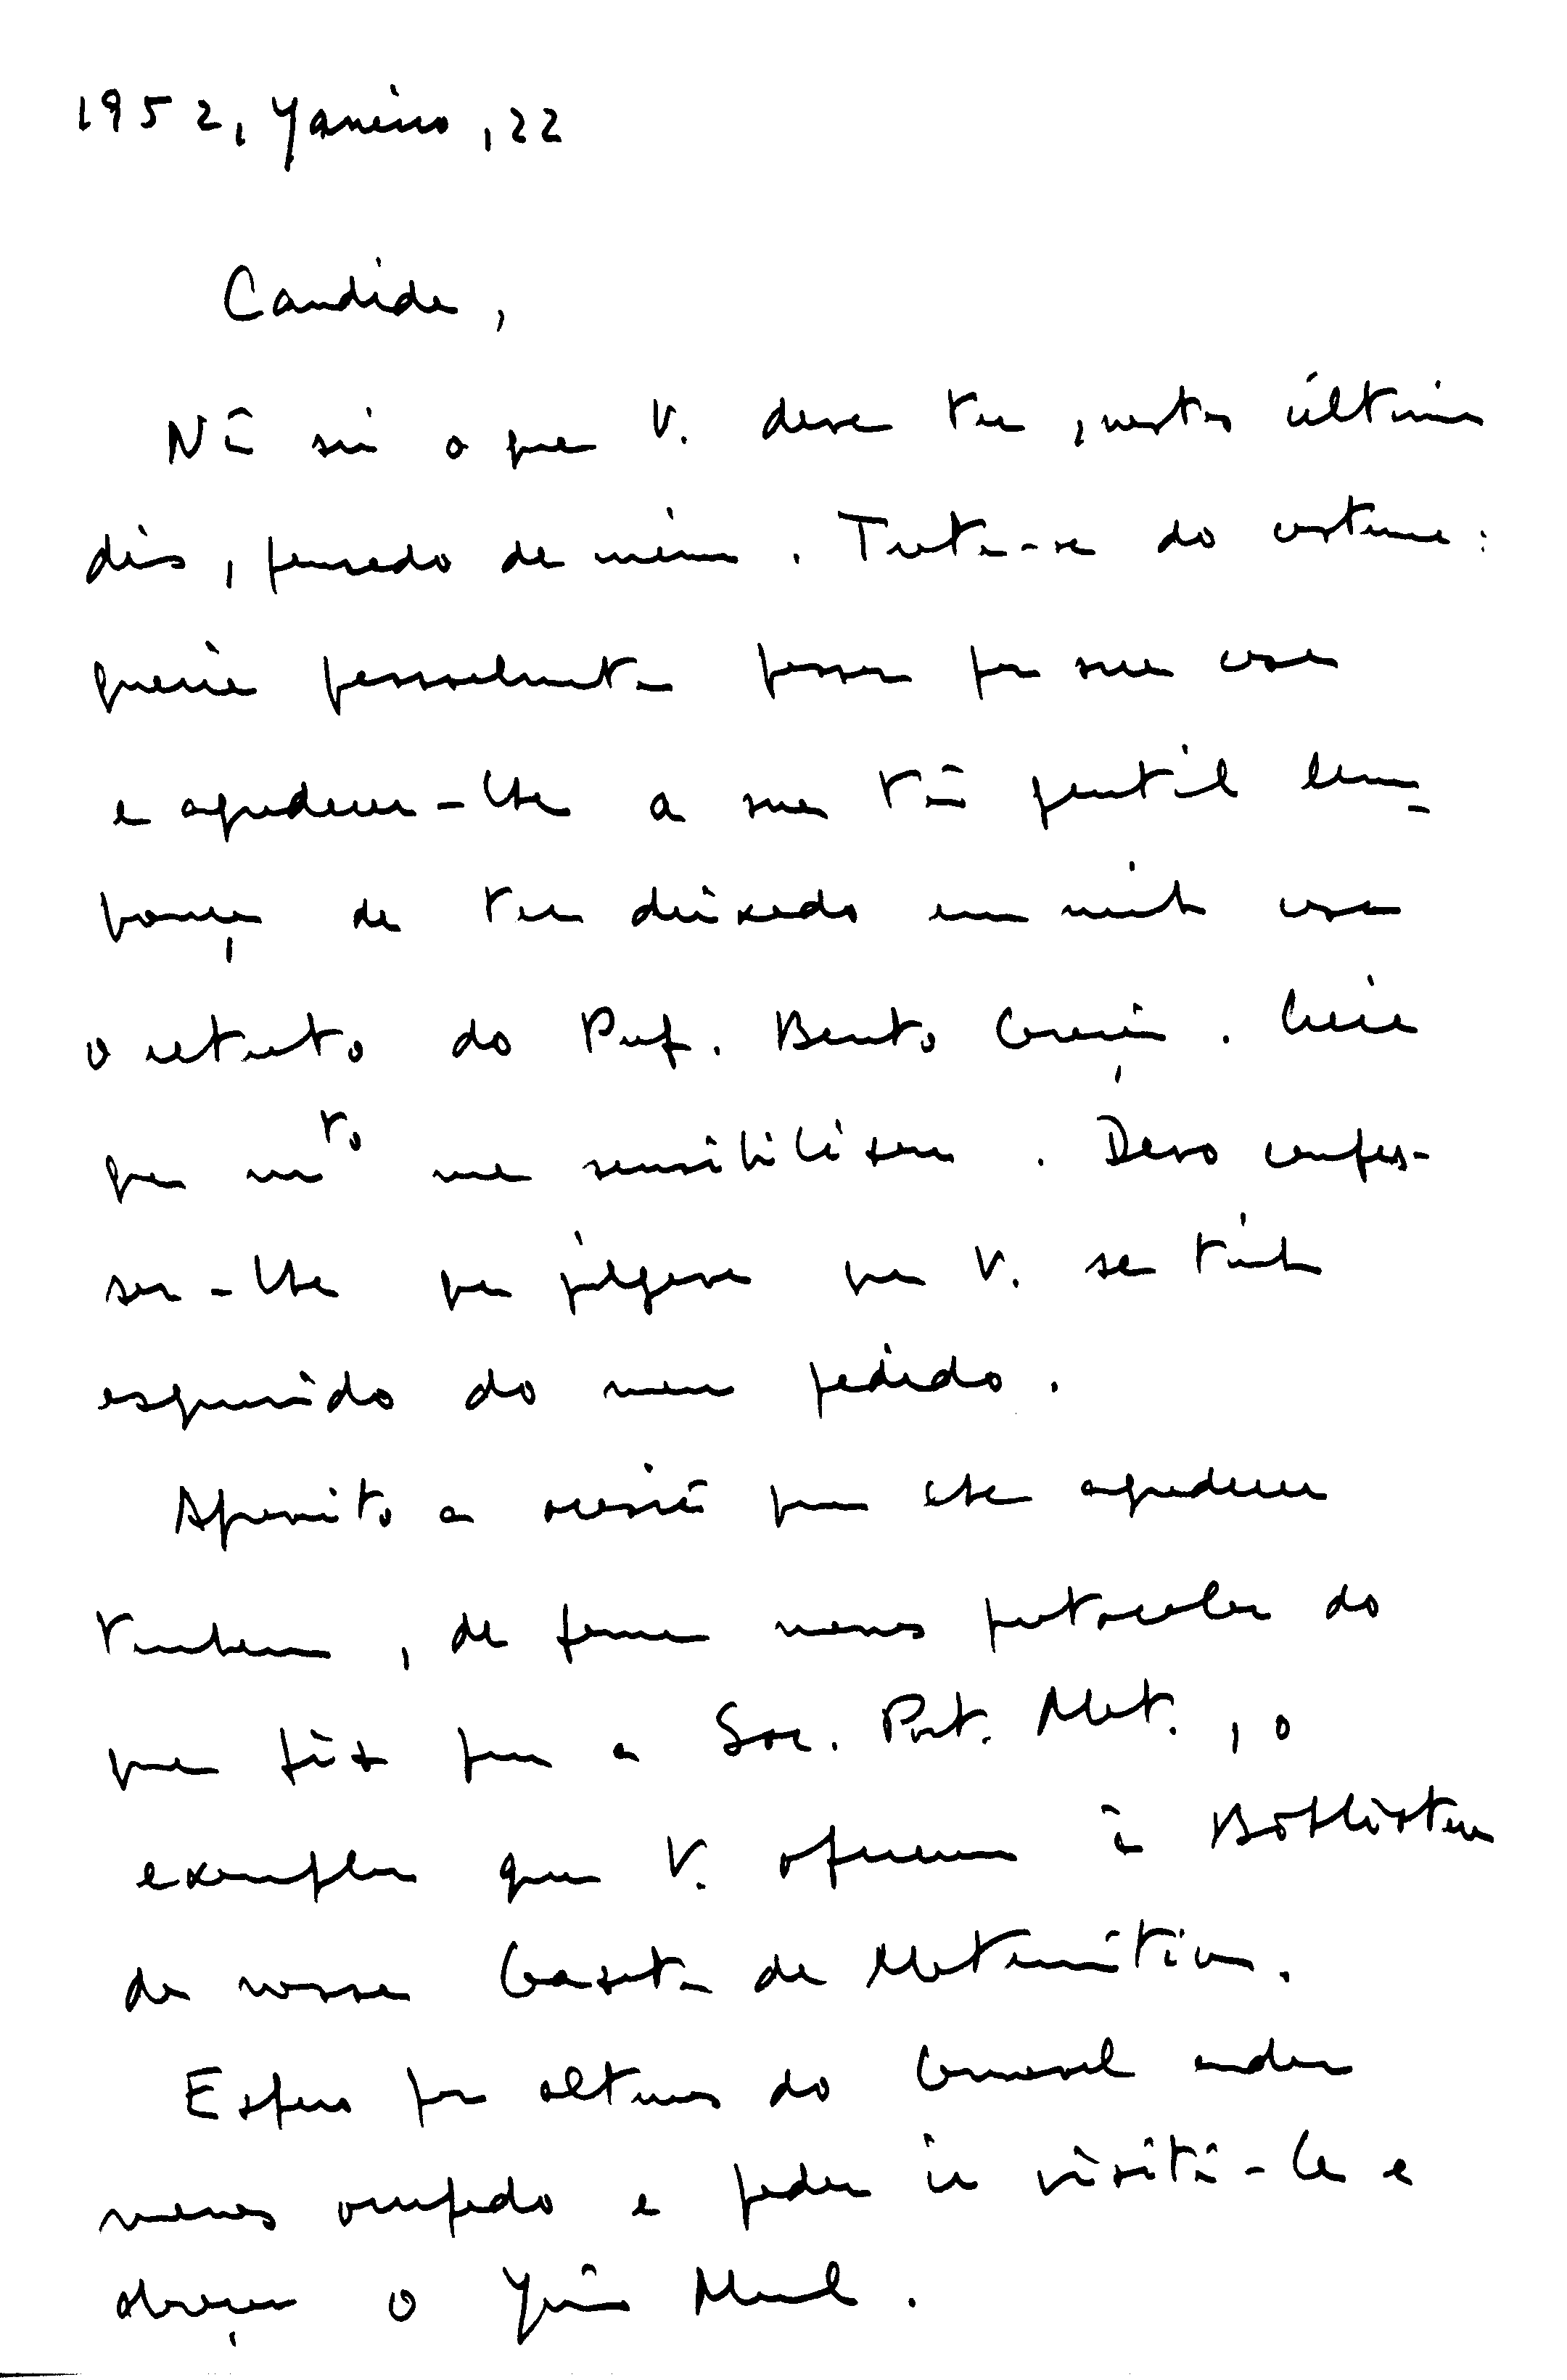 1952, Janeiro, 22
Candida,
Não sei o que V. deve ter, nestes últimos
dias, pensado de mim. Trata-se do costume:
queria pessoalmente passar por sua casa
e agradecer-lhe a sua tão gentil lem-
brança de ter deixado em minha casa
o retrato do Prof. Bento Caraça. Creia
que mto me sensibilizou. Devo confes-
sar-lhe que julgava que V. se tinha
esquecido do meu pedido.
Aproveito a ocasião para lhe agradecer
tambem, de forma menos protocolar do
que fiz para a Soc. Port. Mat., o
exemplar que V. ofereceu à Biblioteca
da nossa Gazeta de Matemática.
Espero por alturas do Carnaval andar
menos ocupado e poder ir visitá-la e
abraçar o João Manuel.